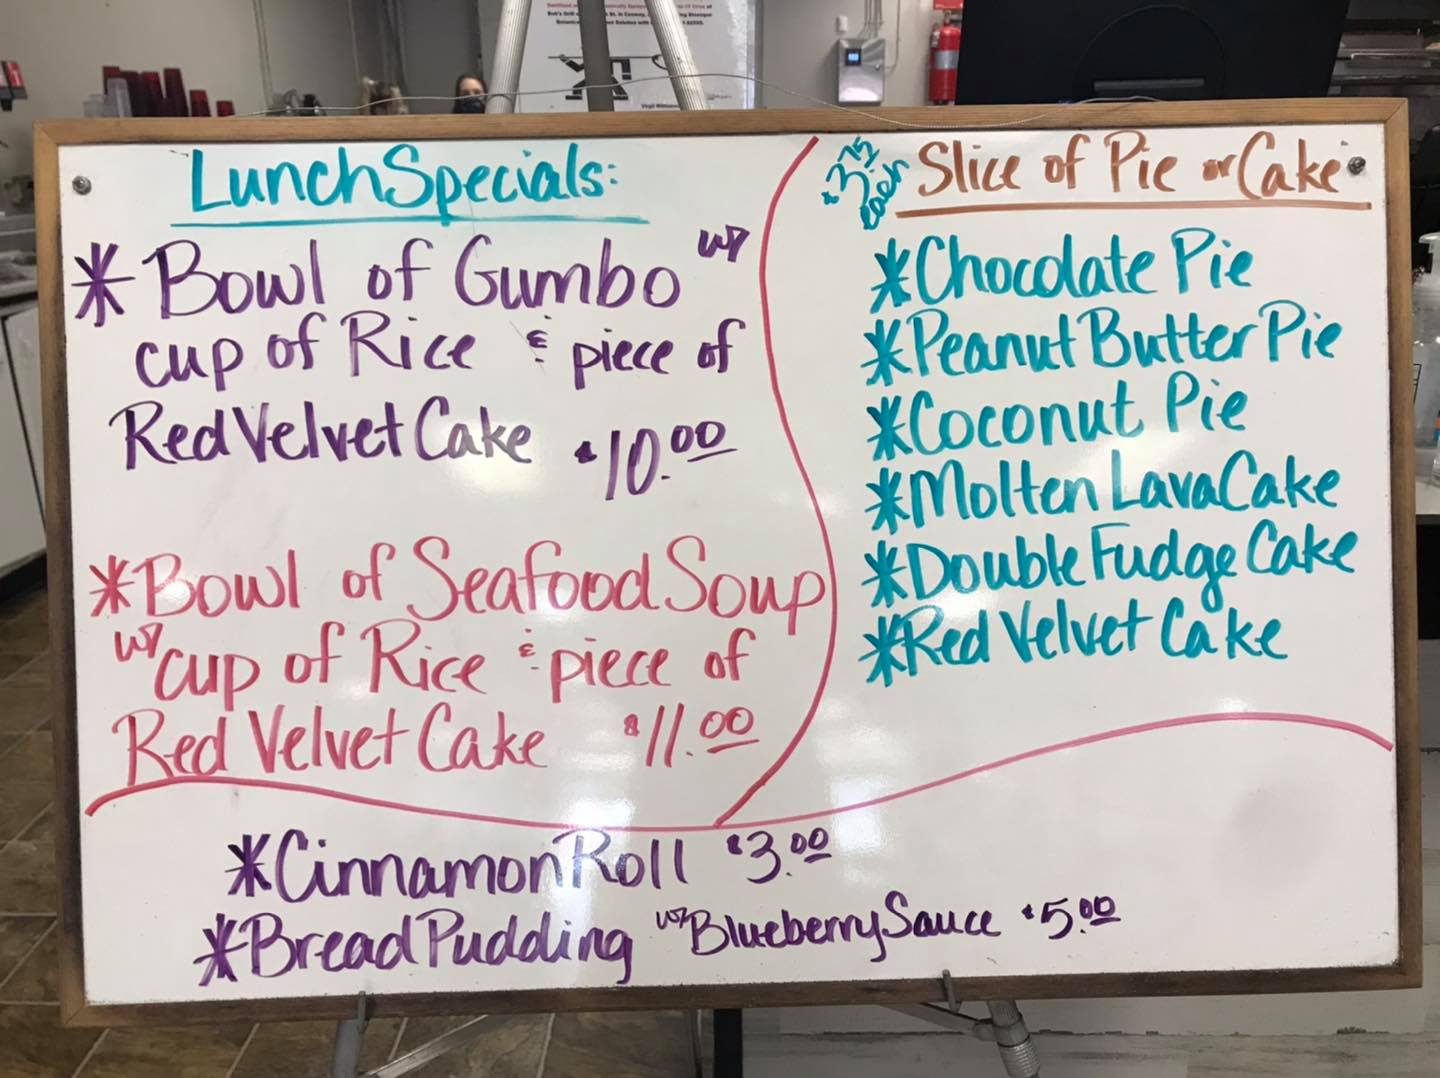 Lunch Specials:
* Bowl of Gumbo w/
cup of Rice & piece of
Red Velvet Cake $10.00
* Bowl of Seafood Soup
w/ cup of Rice & piece of
Red Velvet Cake $11.00
$3.75
each
Slice of Pie or Cake
* Chocolate Pie
* Peanut Butter Pie
* Coconut Pie
* Molten Lava Cake
* Double Fudge Cake
* Red Velvet Cake
* Cinnamon Roll $3.00
* Bread Pudding w/ Blueberry Sauce $5.00